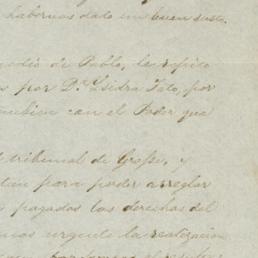 habernos dado un buen susto.
medio de Pablo, le repito
s por D.ª Isidra Tato, por
tambien con el Poder que
l tribunal de Grasse, y
tan para poder arreglar
s pagados los derechos del
mos urgente la realizacion